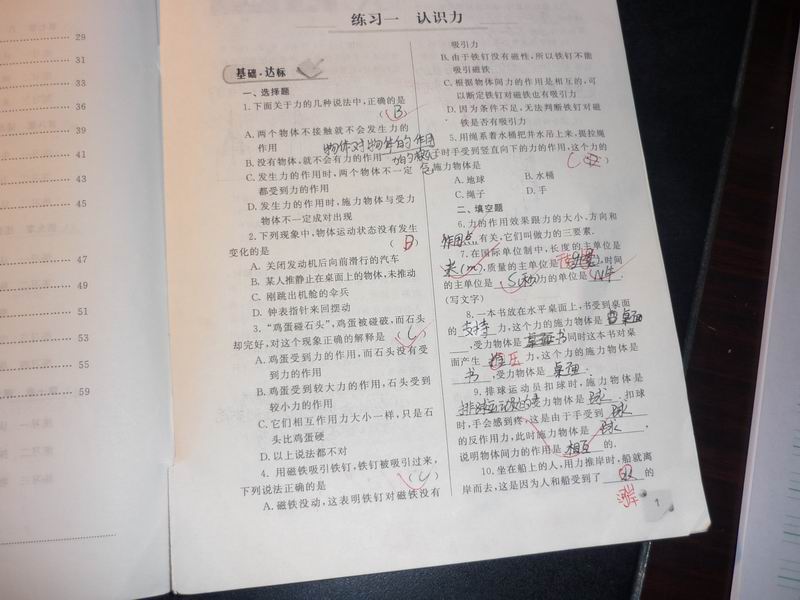 29
31
33
36
39
41
43
45
47
49
51
53
55
59
练习一 认识力
基础·达标
一、选择题
1.下面关于力的几种说法中,正确的是
(B)
A.两个物体不接触就不会发生力的
作用
物体对物体的作用
B.没有物体,就不会有力的作用
C.发生力的作用时,两个物体不一定
都受到力的作用
D.发生力的作用时,施力物体与受力
物体不一定成对出现
2.下列现象中,物体运动状态没有发生
变化的是 (B)
A.关闭发动机后向前滑行的汽车
B.某人推静止在桌面上的物体,未推动
C.刚跳出机舱的伞兵
D.钟表指针来回摆动
3.“鸡蛋碰石头”,鸡蛋被碰破,而石头
却完好,对这个现象正确的解释是 (C)
A.鸡蛋受到力的作用,而石头没有受
到力的作用
B.鸡蛋受到较大力的作用,石头受到
较小力的作用
C.它们相互作用力大小一样,只是石
头比鸡蛋硬
D.以上说法都不对
4.用磁铁吸引铁钉,铁钉被吸引过来,
下列说法正确的是 (C)
A.磁铁没动,这表明铁钉对磁铁没有
吸引力
B.由于铁钉没有磁性,所以铁钉不能
吸引磁铁
C.根据物体间力的作用是相互的,可
以断定铁钉对磁铁也有吸引力
D.因为条件不足,无法判断铁钉对磁
铁是否有吸引力
5.用绳系着水桶把井水吊上来,提拉绳
子时手受到竖直向下的力的作用,这个力的
施力物体是 (C
A.地球 B.水桶
C.绳子 D.手
二、填空题
6.力的作用效果跟力的大小、方向和
作用点有关,它们叫做力的三要素.
7.在国际单位制中,长度的主单位是
米(m),质量的主单位是 ,时间
的主单位是 S(秒) 力的单位是 N牛 .
(写文字)
8.一本书放在水平桌面上,书受到桌面
的 支持 力,这个力的施力物体是 桌面
,受力物体是 书 同时这本书对桌
面产生 压 力,这个力的施力物体是
书 ,受力物体是 桌面 .
9.排球运动员扣球时,施力物体是
排球运动员的手 受力物体是 球 . 扣球
时,手会感到疼,这是由于手受到 球
的反作用力,此时施力物体是 球 ,
说明物体间力的作用是 相互 的.
10.坐在船上的人,用力推岸时,船就离
岸而去,这是因为人和船受到了 水 的
河岸
1